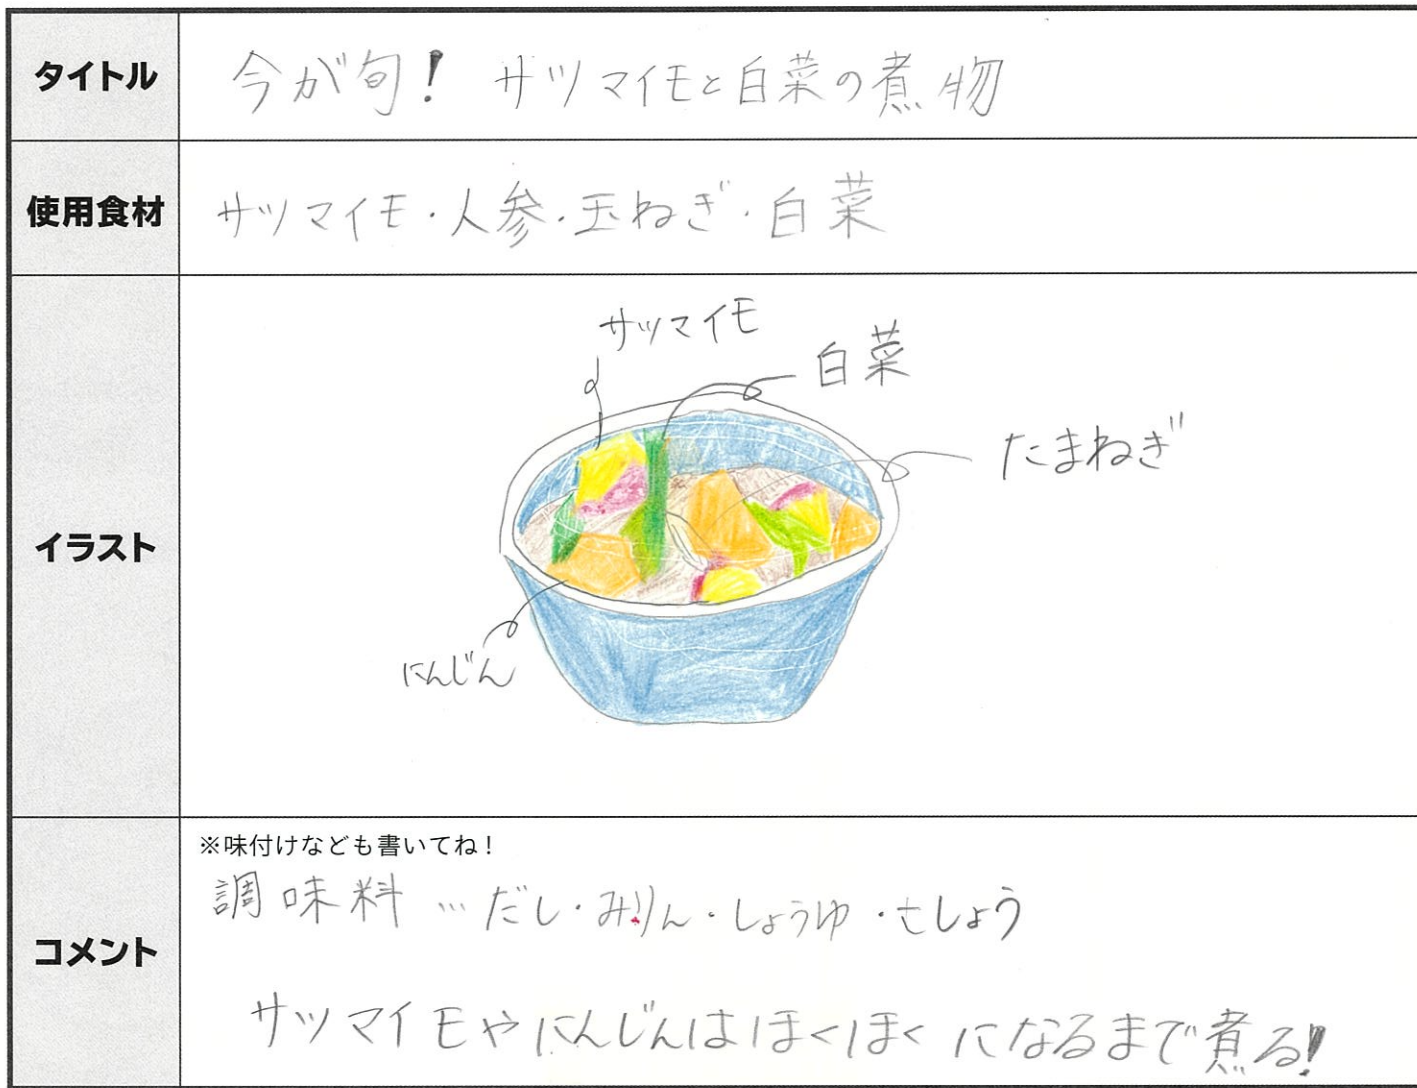 タイトル
今が旬! サツマイモと白菜の煮物
使用食材
サツマイモ・人参・玉ねぎ・白菜
イラスト
サツマイモ
白菜
たまねぎ
にんじん
コメント
※味付けなども書いてね！
調味料…だし・みりん・しょうゆ・
サツマイモやにんじんはほくほくになるまで煮る!